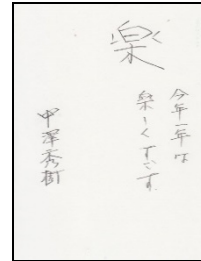 楽
今年一年は
楽しくすごす
中澤秀樹